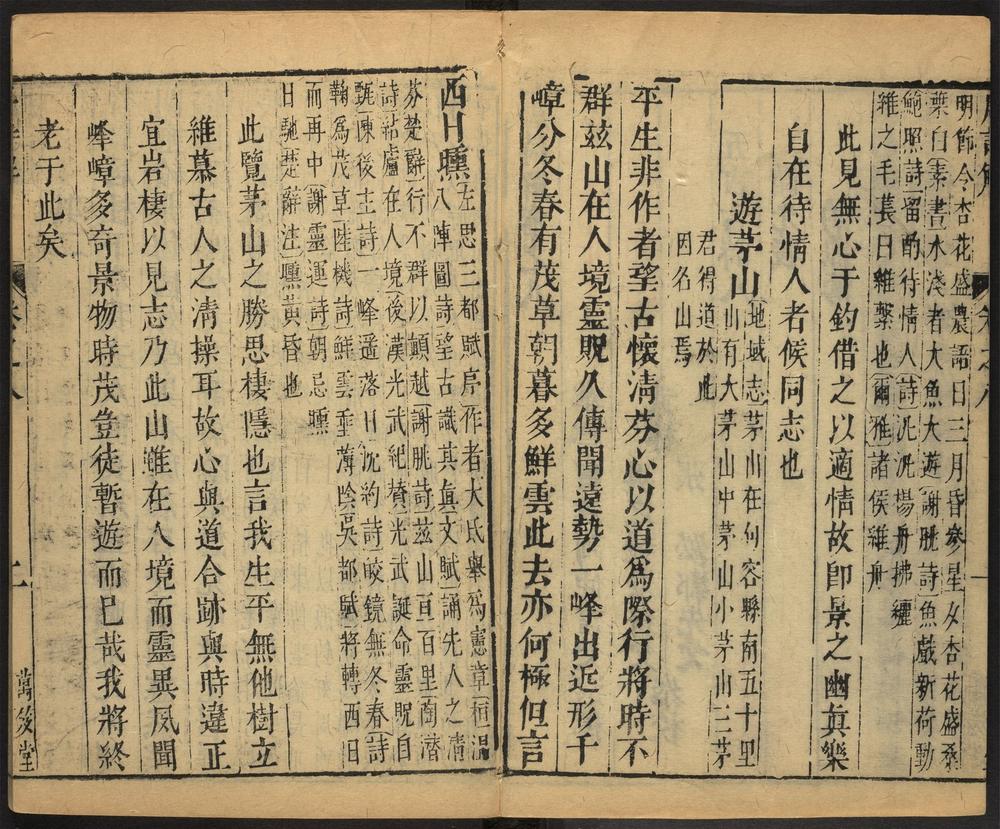 明節令杏花盛農語曰三月昏參星夕杏花盛桑
葉白素書水淺者大魚大遊謝朓詩魚戲新荷動
鮑照詩留酌待情人詩汎汎楊舟拂纚
維之毛萇曰維繫也爾雅諸侯維舟
此見無心于釣借之以適情故卽景之幽眞樂
自在待情人者候同志也
遊茅山
地域志茅山在句容縣南五十里
山有大茅山中茅山小茅山三茅
君得道於此
因名山焉
平生非作者望古懷淸芬心以道爲際行將時不
群茲山在人境靈貺久傳聞遠勢一峰出近形千
嶂分冬春有茂草朝暮多鮮雲此去亦何極但言
西日曛
左思三都賦序作者大氐舉爲憲章桓溫
八陣圖詩望古識其眞文賦誦先人之淸
芬楚辭行不群以顛越謝朓詩茲山亘百里陶潛
詩結廬在人境後漢光武紀贊光武誕命靈貺自
甄陳後主詩一峰遥落日沈約詩皎鏡無冬春詩
鞠爲茂草陸機詩鮮雲垂薄陰吳都賦將轉西日
而再中謝靈運詩朝忌曛
日馳楚辭注曛黃昏也
此覽茅山之勝思棲隱也言我生平無他樹立
維慕古人之淸操耳故心與道合跡與時違正
宜岩棲以見志乃此山雖在人境而靈異夙聞
峰嶂多奇景物時茂豈徒暫遊而已哉我將終
老于此矣
二
萬笈堂